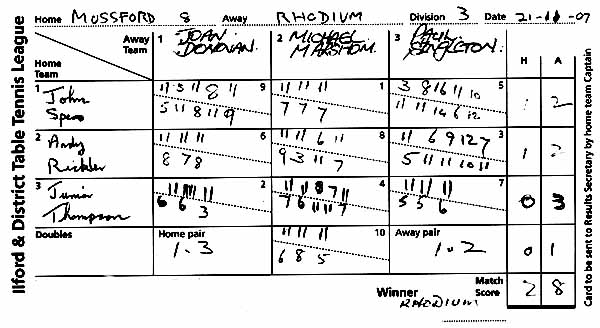 Ilford & District Table Tennis League
Home MOSSFORD 8 Away RHODIUM Division 3 Date 21-11-07
Away Team
Home Team
1 JOAN DONOVAN
2 MICHAEL MARSHOM.
3 PAUL SINGLETON.
H A
1 John Spero
11 3 11 8 11 9
5 11 8 11 9
11 11 11 1
7 7 7
3 8 16 11 10 5
11 11 14 6 12
2
2 Andy Rickler
11 11 11 6
8 7 8
11 11 6 11 8
9 3 11 7
11 6 9 12 7 3
5 11 11 10 11
1 2
3 Junior Thompson
2
6 6 3
4
7
5 5 6
0 3
Doubles
Home pair
1.3
11 11 11 10
6 8 5
Away pair
1.2
0 1
Winner RHODIUM
Match Score
2 8
Card to be sent to Results Secretary by home team Captain